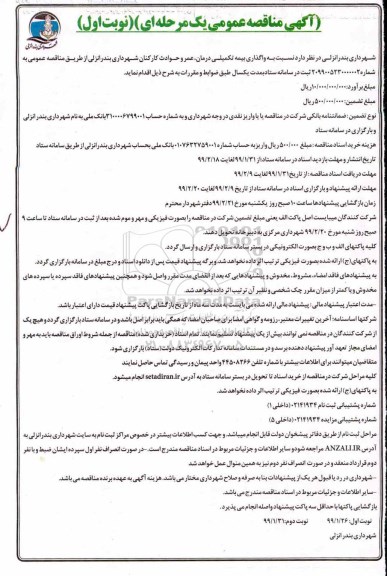 (آگهی مناقصه عمومی یک مرحله ای) (نوبت اول)
شهرداری بندرانزلی
شهرداری بندرانزلی در نظر دارد نسبت به واگذاری بیمه تکمیلی درمان، عمر و حوادث کارکنان شهرداری بندرانزلی از طریق مناقصه عمومی به
شماره ۲۰۹۹۰۰۵۲۳۰۰۰۰۰۲ ثبت در سامانه ستاد بمدت یکسال طبق ضوابط و مقررات به شرح ذیل اقدام نماید.
مبلغ برآورد: ۱۰/۰۰۰/۰۰۰/۰۰۰ ریال
مبلغ تضمین: ۵۰۰/۰۰۰/۰۰۰ ریال
نوع تضمین: ضمانتنامه بانکی شرکت در مناقصه یا واریز نقدی در وجه شهرداری و به شماره حساب ۳۱۰۰۰۰۶۷۹۹۰۰۱ بانک ملی به نام شهرداری بندر انزلی
و بارگزاری در سامانه ستاد
هزینه خرید اسناد مناقصه: مبلغ ۵۰۰/۰۰۰ ریال واریز به حساب شماره ۰۱۰۷۶۳۳۷۵۹۰۰۱ بانک ملی بحساب شهرداری بندر انزلی از طریق سامانه ستاد
تاریخ انتشار و مهلت بازدید اسناد در سامانه ستاد از ۹۹/۱/۳۱ لغایت ۹۹/۲/۱۸
مهلت دریافت اسناد مناقصه: از تاریخ ۹۹/۱/۳۱ لغایت ۹۹/۲/۹
مهلت ارائه پیشنهاد و بارگزاری اسناد در سامانه ستاد از تاریخ ۹۹/۲/۹ لغایت ۹۹/۲/۲۰
زمان بازگشایی پیشنهادها ساعت ۱۰ صبح روز یکشنبه مورخ ۹۹/۲/۲۱ دفتر شهردار محترم
شرکت کنندگان میبایست اصل پاکت الف یعنی مبلغ تضمین شرکت در مناقصه را بصورت فیزیکی و مهر و موم شده بعد از ثبت در سامانه ستاد تا ساعت ۹
صبح روز شنبه مورخ ۹۹/۲/۲۰ شهرداری مرکزی به دبیرخانه تحویل دهند
کلیه پاکتهای الف و ب و ج بصورت الکترونیکی در بستر سامانه ستاد بارگزاری و ارسال گردد.
به پاکتهای (ج) ارائه شده بصورت فیزیکی ترتیب اثر داده نخواهد شد. و برگه پیشنهاد قیمت پس از دانلود اسناد و درج مبلغ در سامانه بارگزاری گردد.
به پیشنهادهای فاقد امضاء، مشروط، مخدوش و پیشنهادهایی که بعد از انقضای مدت مقرر واصل شود و همچنین پیشنهادهای فاقد سپرده یا سپرده های
مخدوش و یا کمتر از میزان مقرر چک شخصی و نظیر آن ترتیب اثر داده نخواهد شد.
-مدت اعتبار پیشنهاد مالی: پیشنهاد مالی ارائه شده می بایست به مدت سه ماه از تاریخ بازگشایی پاکت پیشنهاد قیمت دارای اعتبار باشد.
متقاضیان میتوانند برای اطلاعات بیشتر با شماره تلفن ۴۴۵۰۸۳۶۶ واحد پیمان و رسیدگی تماس حاصل نمایند
کلیه مراحل شرکت در مناقصه از خرید اسناد تا تحویل در بستر سامانه ستاد به آدرس setadiran.ir انجام میشود.
به پاکتهای (ج) ارائه شده بصورت فیزیکی ترتیب اثر داده نخواهد شد.
شماره پشتیبانی ثبت نام ۰۲۱۴۱۹۳۴ (داخلی ۱)
شماره پشتیبانی مزایده ۰۲۱۴۱۹۳۴ (داخلی ۵)
مراحل ثبت نام از طریق دفاتر پیشخوان دولت قابل انجام میباشد. و جهت کسب اطلاعات بیشتر در خصوص مراکز ثبت نام به سایت شهرداری بندر انزلی به
آدرس ANZALI.IR مراجعه شود و سایر اطلاعات و جزئیات مربوط در اسناد مناقصه مندرج است. -در صورت انصراف نفر اول سپرده ایشان ضبط و با نفر
دوم قرارداد منعقد و در صورت انصراف نفر دوم نیز به همین منوال عمل خواهد شد
-شهرداری در رد یا قبول هر یک از پیشنهادات بنا به صرفه و صلاح شهرداری مختار می باشد. هزینه آگهی به عهده برنده مناقصه می باشد.
-سایر اطلاعات و جزئیات مربوط در اسناد مناقصه مندرج می باشد.
بازگشایی پاکتها با حداقل سه پاکت پیشنهاد واصله انجام می پذیرد.
نوبت اول: ۹۹/۱/۲۶ نوبت دوم: ۹۹/۱/۳۱
شهرداری بندر انزلی